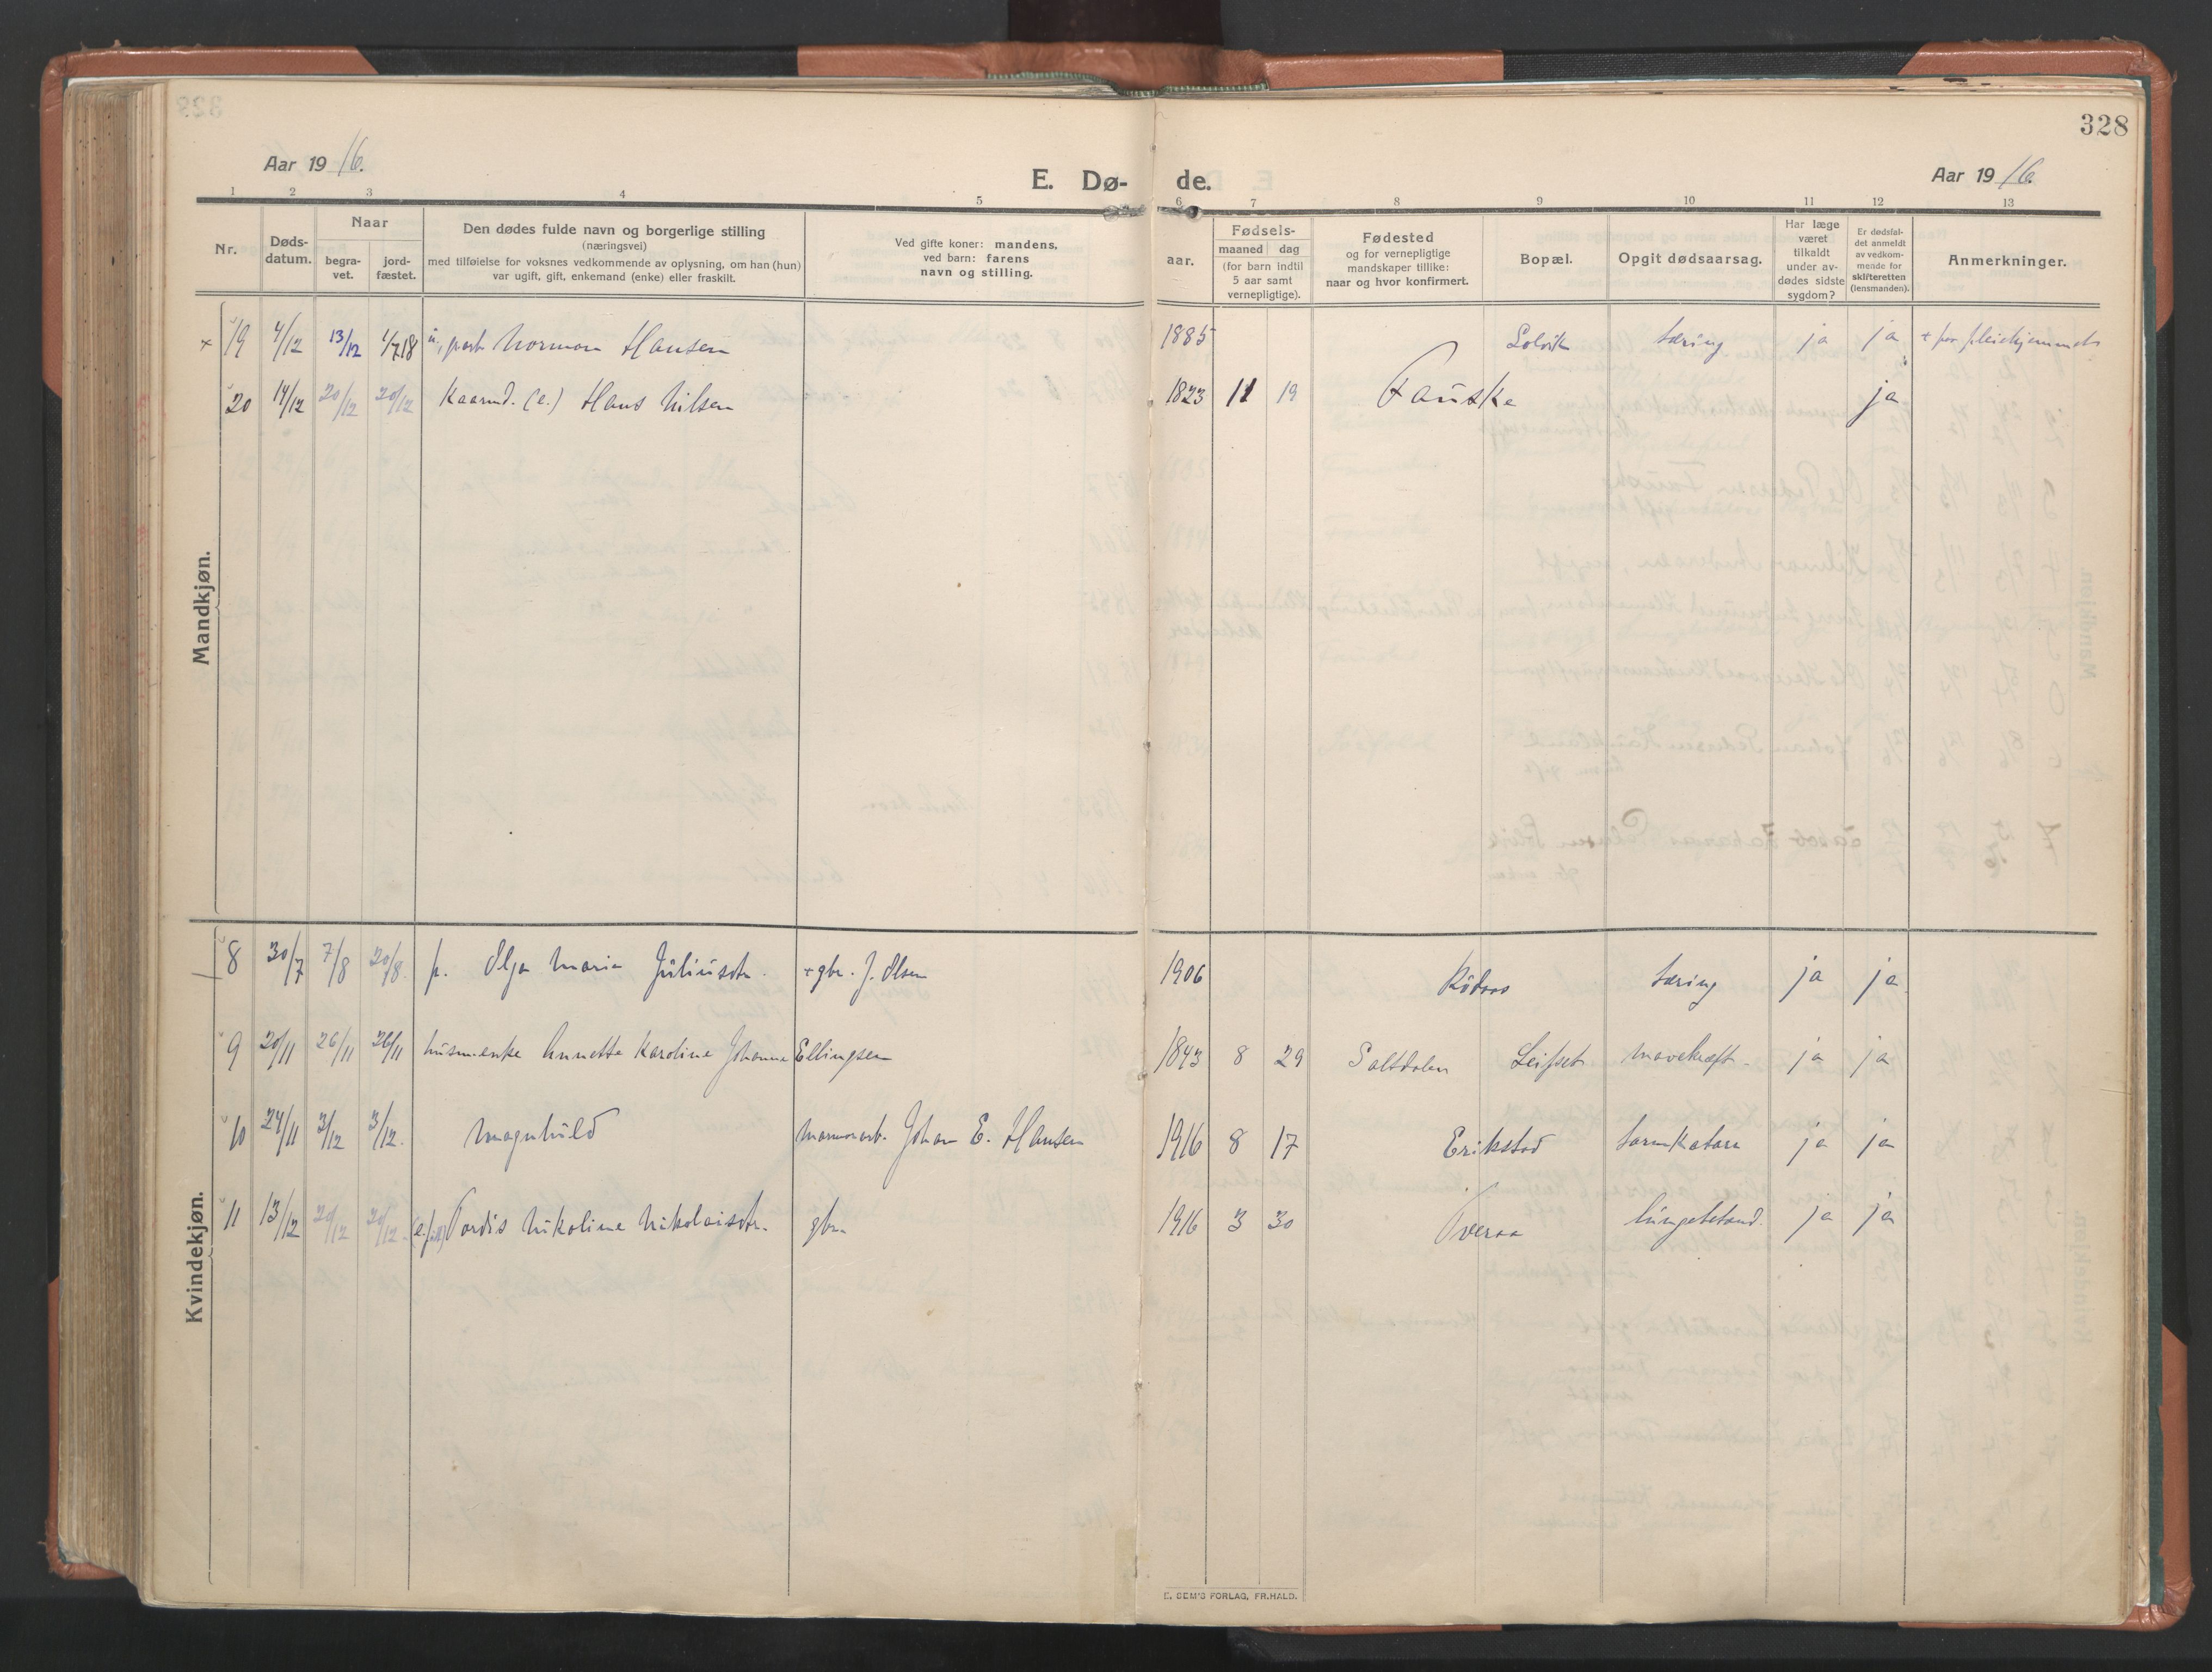 328
Aar 19 16.
E. Dø-
de.
Aar 19 16.
1 2 3 4 5 6 7 8 9 10 11 12 13
Nr.
Døds-
datum.
Naar
begra-
vet.
jord-
fæstet.
Den dødes fulde navn og borgerlige stilling
(næringsvei)
med tilføielse for voksnes vedkommende av oplysning, om han (hun)
var ugift, gift, enkemand (enke) eller fraskilt.
Ved gifte koner: mandens.
ved barn: farens
navn og stilling.
aar.
Fødsels-
maaned dag
(for barn indtil
5 aar samt
vernepligtige).
Fødested
og for vernepligtige
mandskaper tillike:
naar og hvor konfirmert.
Bopæl.
Opgit dødsaarsag.
Har læge
været
tilkaldt
under av-
dødes sidste
sygdom?
Er dødsfal-
det anmeldt
av vedkom-
mende for
skifteretten
(lensmanden).
Anmerkninger.
Mandkjøn.
× 19 4/12 13/12 1/7 18 Norman Hansen 1885 Solvik tæring ja ja + paa pleiehjemmet
20 14/12 20/12 20/12 Kaarmd. (e.) Hans Nilsen 1823 11 19 Fauske ja
Kvindekjøn.
8 30/7 7/8 20/8. p. Olga Maria Júliúsdtr. + gbr. J. Olsen 1906 tæring ja ja
9 20/11 26/11 26/11 húsmenke Annette Karoline Johanna Ellingsen 1843 8 29 Saltdalen Leifset mavekræft. ja ja
10 24/11 3/12 3/12. Magnhild marmorarb. Johan E. Hansen 1916 8 17 Erikstad tarmkatarr ja ja
11 13/12 20/12 20/12. Tordis Nikoline Nikolaisdtr. gbr. 1916 3 30 Tveraa lúngebetænd. ja ja
E. SEM'S FORLAG, FR.HALD.